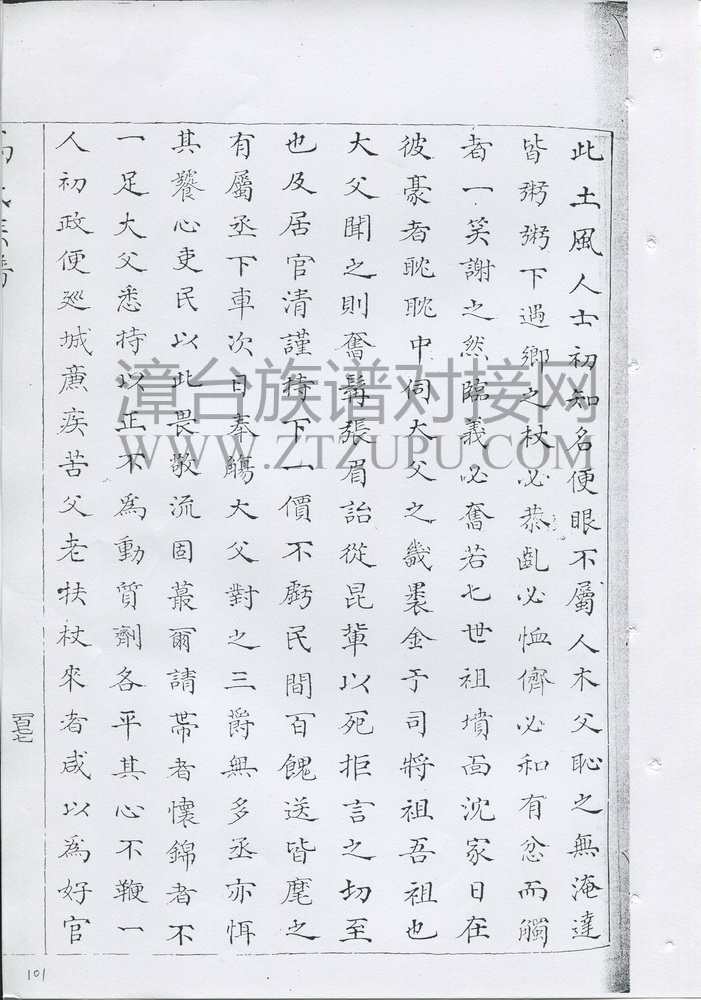 此土風人士初知名便眼不屬人木父恥之無淹達
皆粥粥下遇鄉之杖必恭亂必恤儕必和有忿而觸
者一笑謝之然臨義必奮若七世祖墳面沈家日在
彼豪者眈眈中伺大父之畿褁金于司將祖吾祖也
大父聞之則奮髯張眉詒從昆輩以死拒言之切至
也及居官清謹持下一價不虧民間百餽送皆麾之
有屬丞下車次日奉觴大父對之三爵無多丞亦恆
其饕心吏民以此畏敬流固蕞爾請帶者懷錦者不
一足大父悉持以正不為動質劑各平其心不鞭一
人初政便廵城廡疾苦父老扶杖來者咸以為好官
氏族譜
一百七七
101
漳台族谱对接网
WWW.ZTZUPU.COM